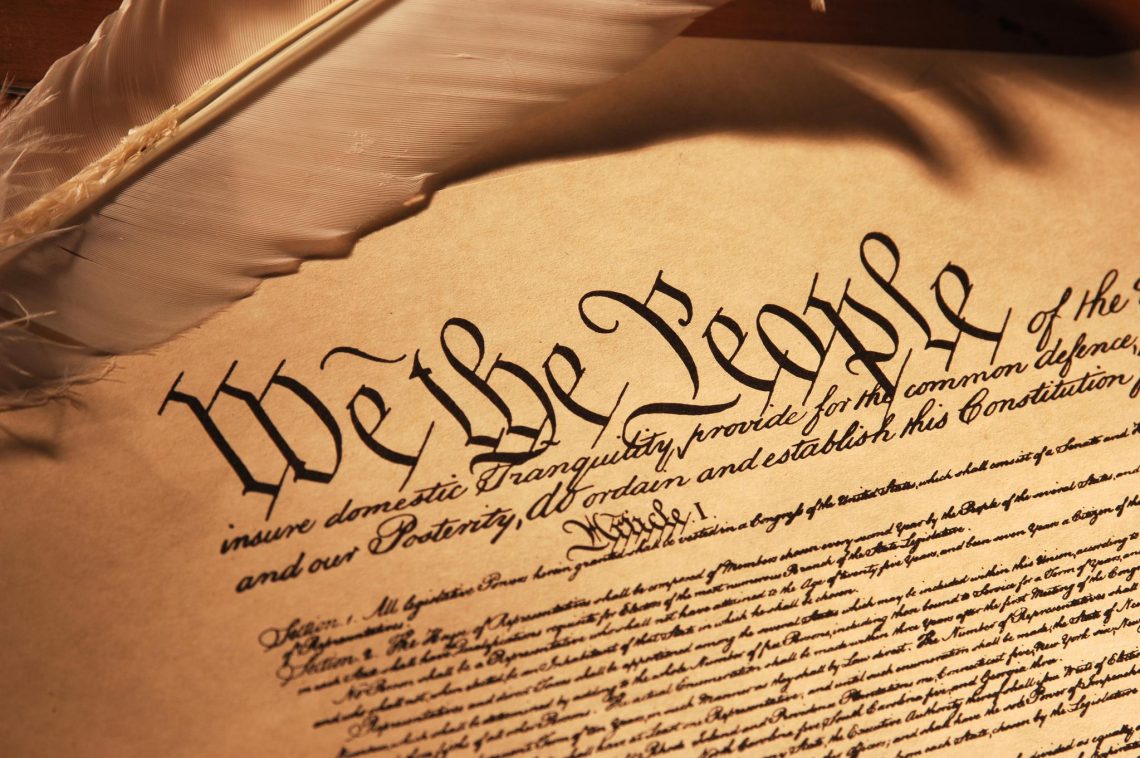 We the People of the
insure domestic Tranquility, provide for the common defence,
and our Posterity, do ordain and establish this Constitution
Article. I.
Section. 1. All legislative Powers herein granted shall be vested in a Congress of the United States, which shall consist of a Senate and
of Representatives.
Section. 2. The House of Representatives shall be composed of Members chosen every second Year by the People of the several States, and
in each State shall have Qualifications requisite for Electors of the most numerous Branch of the State Legislature.
No Person shall be a Representative who shall not have attained to the Age of twenty five Years, and been seven Years a Citizen of the
and who shall not, when elected, be an Inhabitant of that State in which he shall be chosen.
Representatives and direct Taxes shall be apportioned among the several States which may be included within this Union, according to
Numbers, which shall be determined by adding to the whole Number of free Persons, including those bound to Service for a Term of Years, and
of all other Persons. The actual Enumeration shall be made within three Years after the first Meeting of the Congress
Term of ten Years, in such Manner as they shall by Law direct. The Number of Representatives shall
shall have at Least one Representative; and until such enumeration shall be made, the State of New
Rhode Island and Providence Plantations one, Connecticut five, New York six, New
North Carolina five, South Carolina five, and Georgia three.
State, the Executive Authority thereof shall issue Writs of Election
Officers; and shall have the sole Power of Impeachment
from each State, chosen by the Legislature
divided as equally